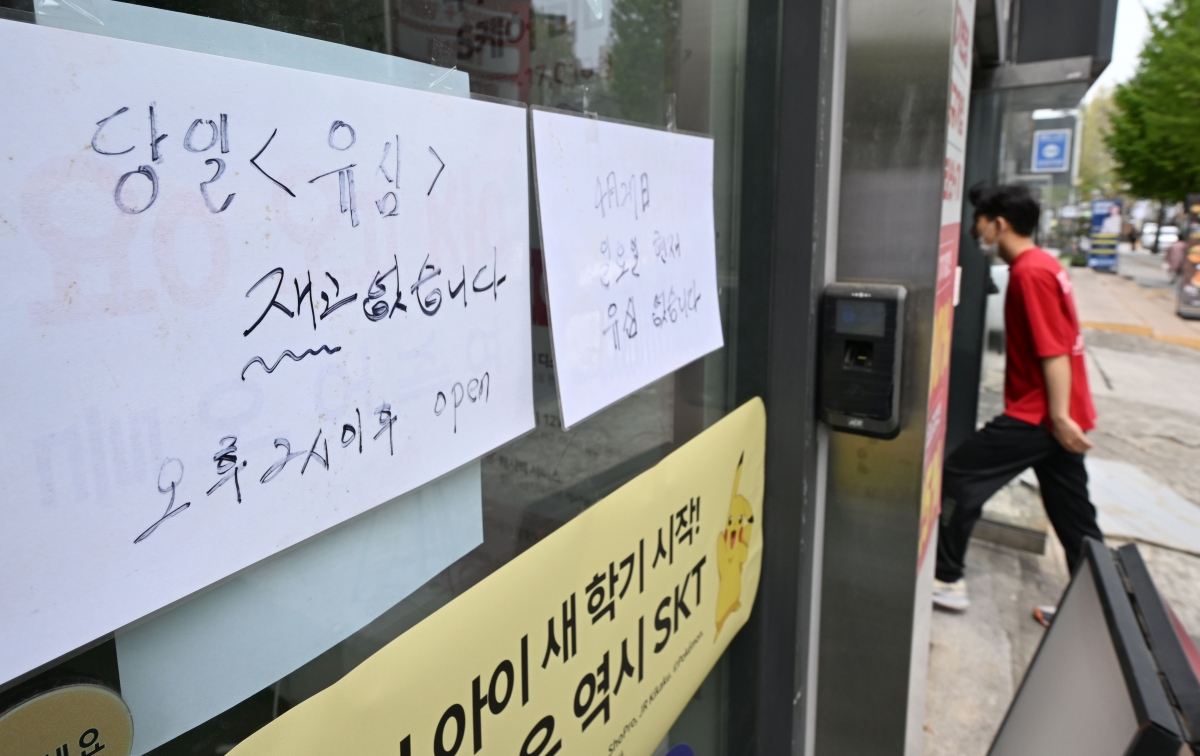 당일<유심>
재고 없습니다
오후 2시 이후 open
일요일 현재
유심 없습니다
아이 새 학기 시작!
역시 SKT
ShoPro, JR Kikaku. ©Pokémon